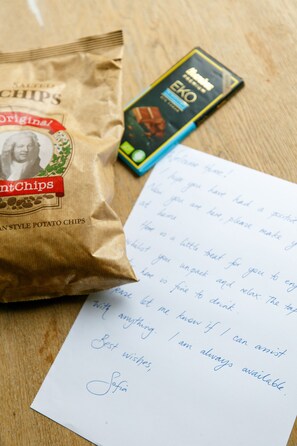 SALTED
CHIPS
Original
ntChips
AN STYLE POTATO CHIPS
PREMIUM
EKO
Welcome home!
hope you have had a great
While you are here, please make yo
at home.
There is a little treat for you to enjoy
whilst you unpack and relax. The tap
here is fine to drink.
Please let me know if I can assist
with anything. I am always available.
Best wishes,
Sofia